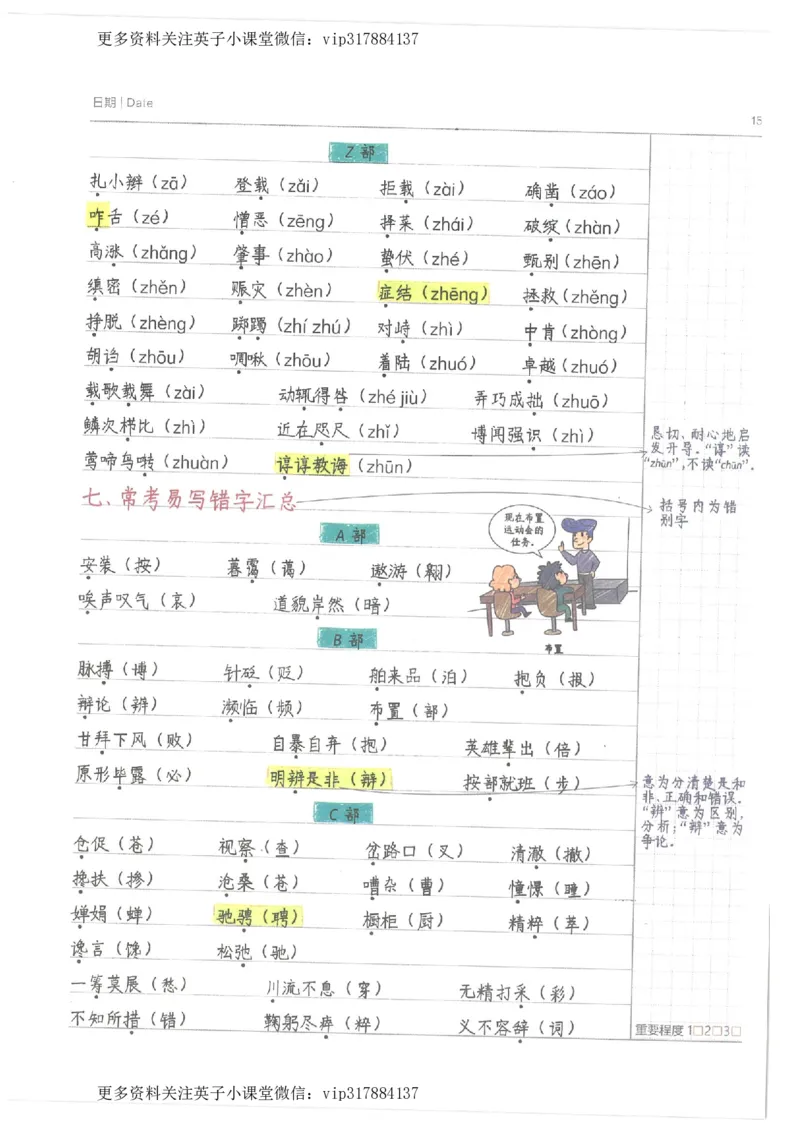 更多资料关注英子小课堂微信：vip317884137
日期 | Date
15
Z 部
扎小辫（zā） 登载（zǎi） 拒载（zài） 确凿（záo）
咋舌（zé） 憎恶（zēng） 择菜（zhái） 破绽（zhàn）
高涨（zhǎng） 肇事（zhào） 蛰伏（zhé） 甄别（zhēn）
缜密（zhěn） 赈灾（zhèn） 症结（zhēng） 拯救（zhěng）
挣脱（zhèng） 踯躅（zhí zhú） 对峙（zhì） 中肯（zhòng）
胡诌（zhōu） 啁啾（zhōu） 着陆（zhuó） 卓越（zhuó）
载歌载舞（zài） 动辄得咎（zhé jiù） 弄巧成拙（zhuō）
鳞次栉比（zhì） 近在咫尺（zhǐ） 博闻强识（zhì）
莺啼鸟啭（zhuàn） 谆谆教诲（zhūn）
恳切、耐心地启
发开导。“谆”读
“zhūn”，不读“chūn”。
七、常考易写错字汇总
括号内为错
别字
A 部
现在布置
运动会的
任务。
安装（按） 暮霭（蔼） 遨游（翱）
唉声叹气（哀） 道貌岸然（暗）
布置
B 部
脉搏（博） 针砭（贬） 舶来品（泊） 抱负（报）
辩论（辨） 濒临（频） 布置（部）
甘拜下风（败） 自暴自弃（抱） 英雄辈出（倍）
原形毕露（必） 明辨是非（辩） 按部就班（步）
意为分清楚是和
非、正确和错误。
“辨”意为区别，
分析；“辩”意为
争论。
C 部
仓促（苍） 视察（查） 岔路口（叉） 清澈（撤）
搀扶（掺） 沧桑（苍） 嘈杂（曹） 憧憬（瞳）
婵娟（蝉） 驰骋（聘） 橱柜（厨） 精粹（萃）
谗言（馋） 松弛（驰）
一筹莫展（愁） 川流不息（穿） 无精打采（彩）
不知所措（错） 鞠躬尽瘁（粹） 义不容辞（词）
重要程度 1□2□3□
更多资料关注英子小课堂微信：vip317884137